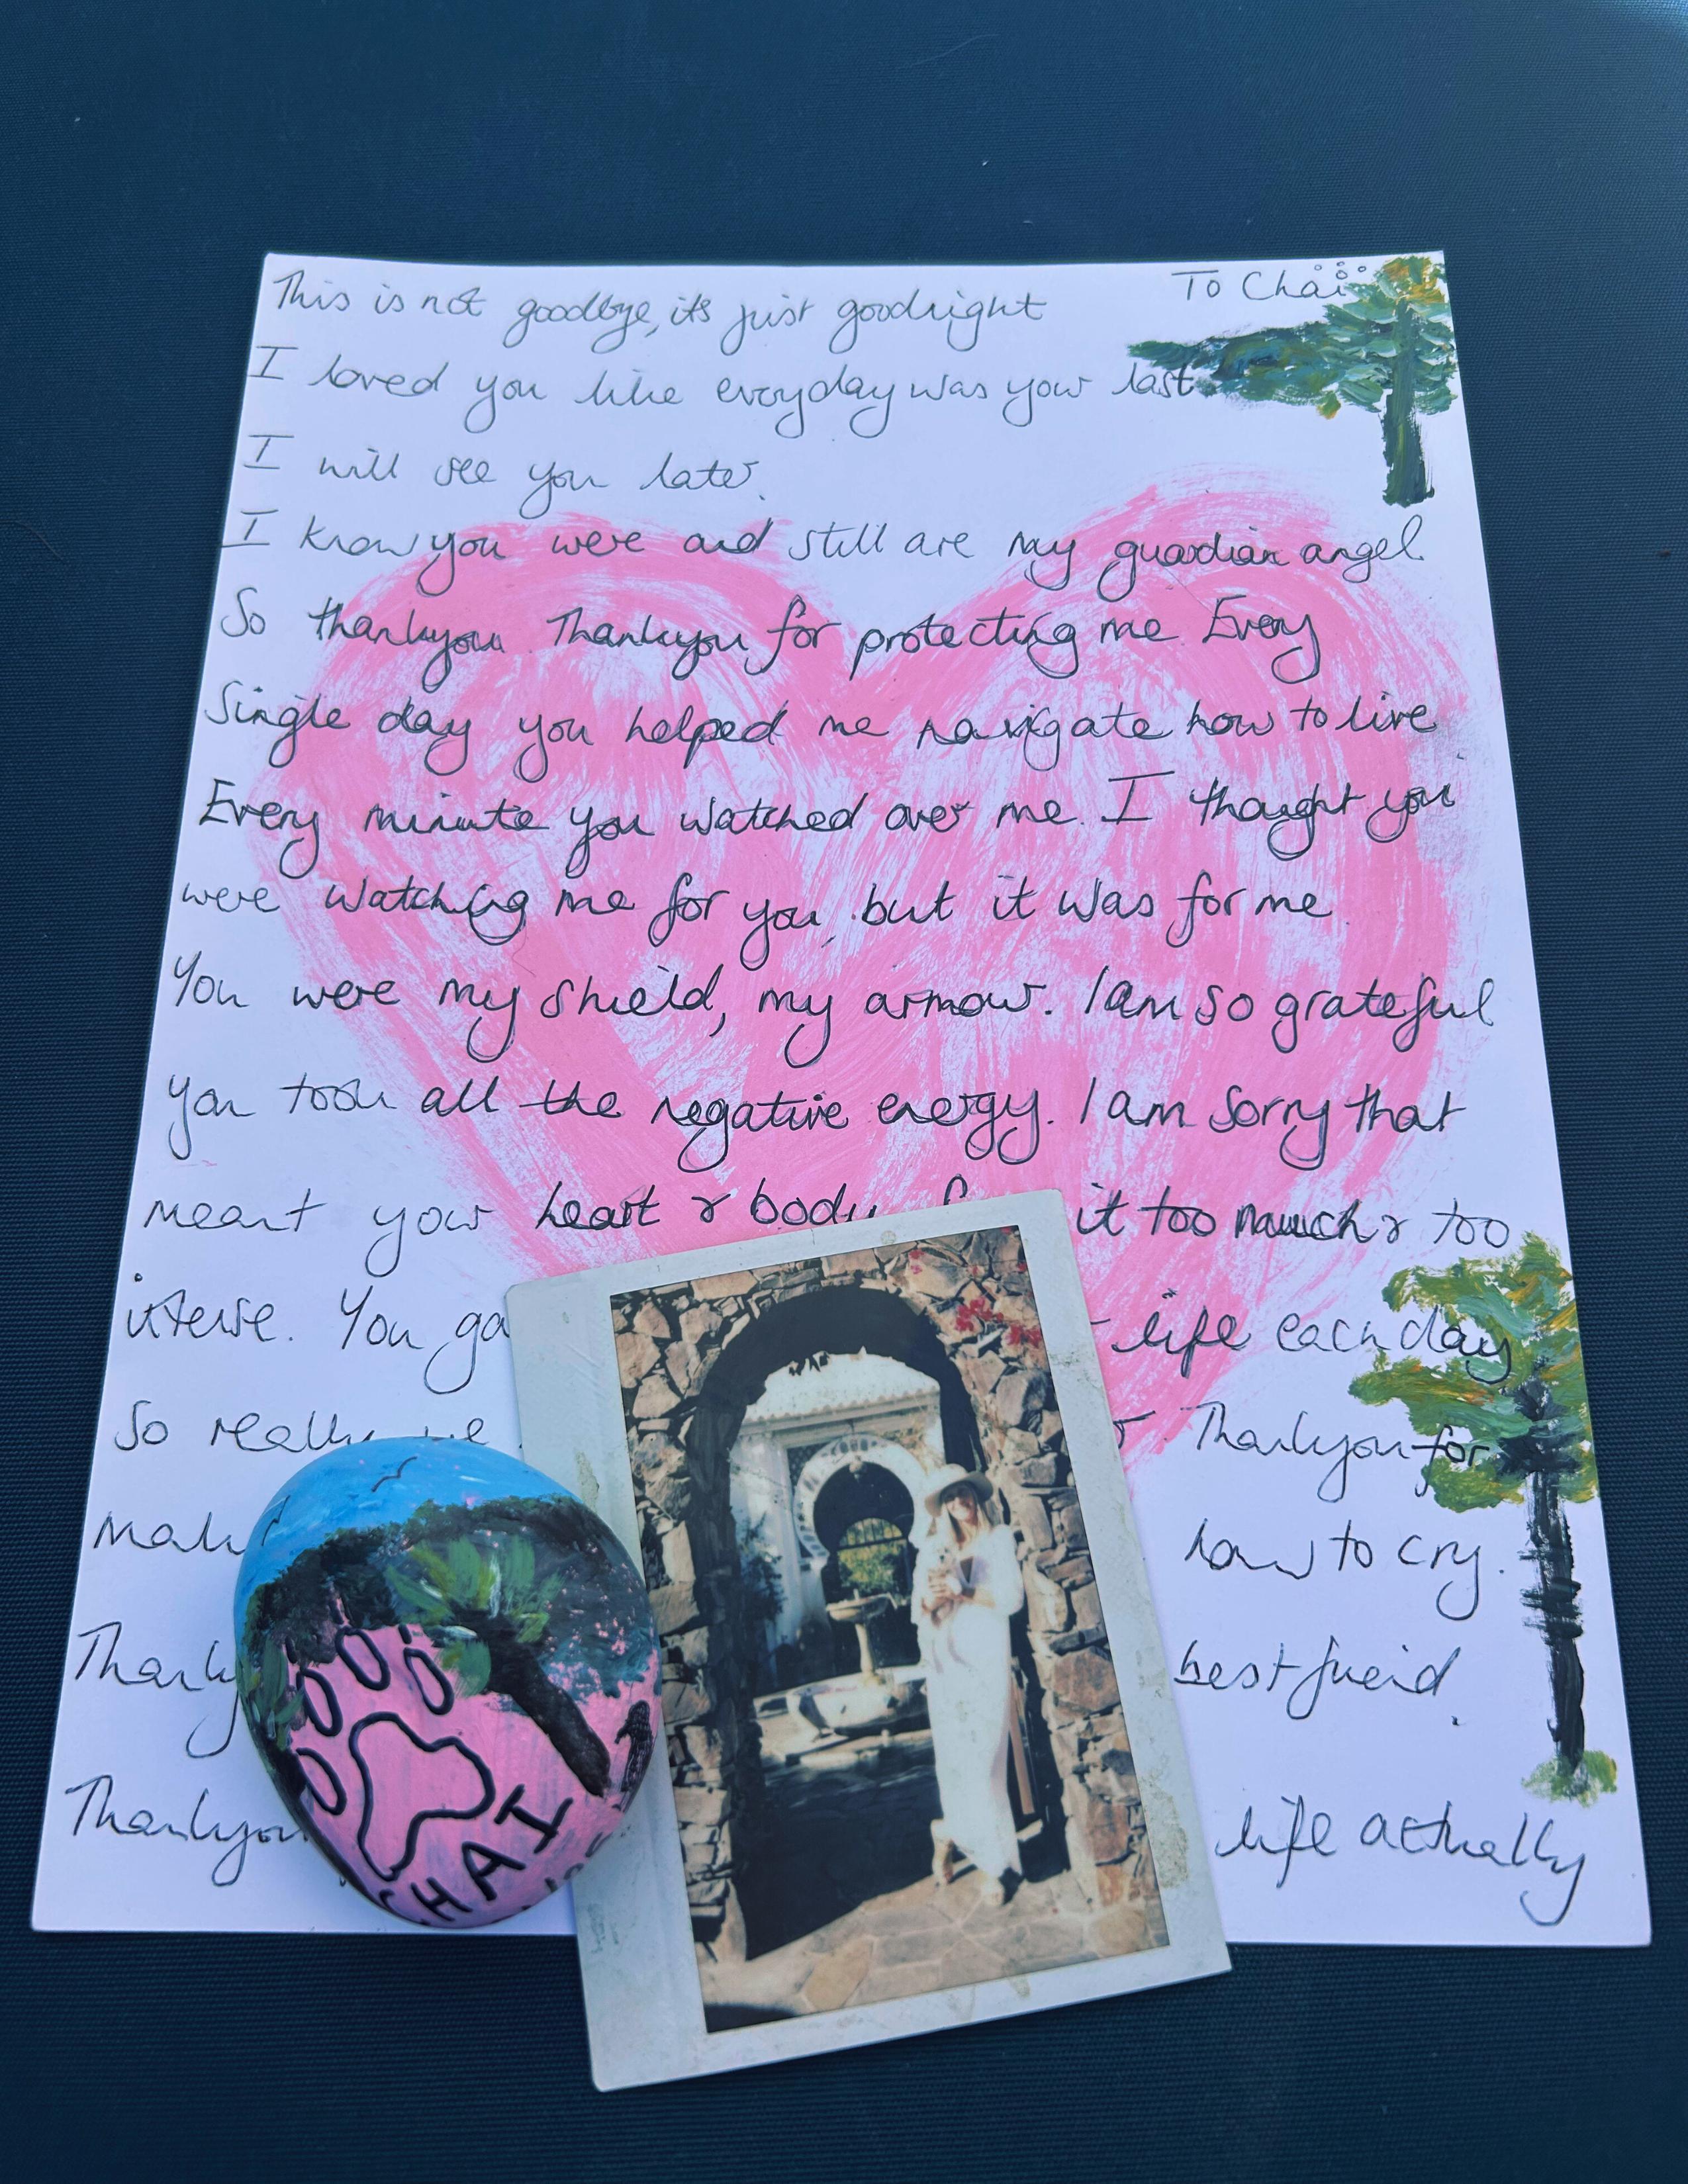 To Chai
This is not goodbye, its just goodnight
I loved you like everyday was your last
I will see you later.
I know you were and still are my guardian angel.
So thankyou. Thankyou for protecting me. Every
Single day you helped me navigate how to live.
Every minute you watched over me. I thought you
were watching me for you, but it was for me.
You were my shield, my armour. I am so grateful
you took all the negative energy. I am sorry that
meant your heart & body it too much & too
intense. You life each day
So really Thankyou for
how to cry.
best freind.
Thankyou life actually
CHAI